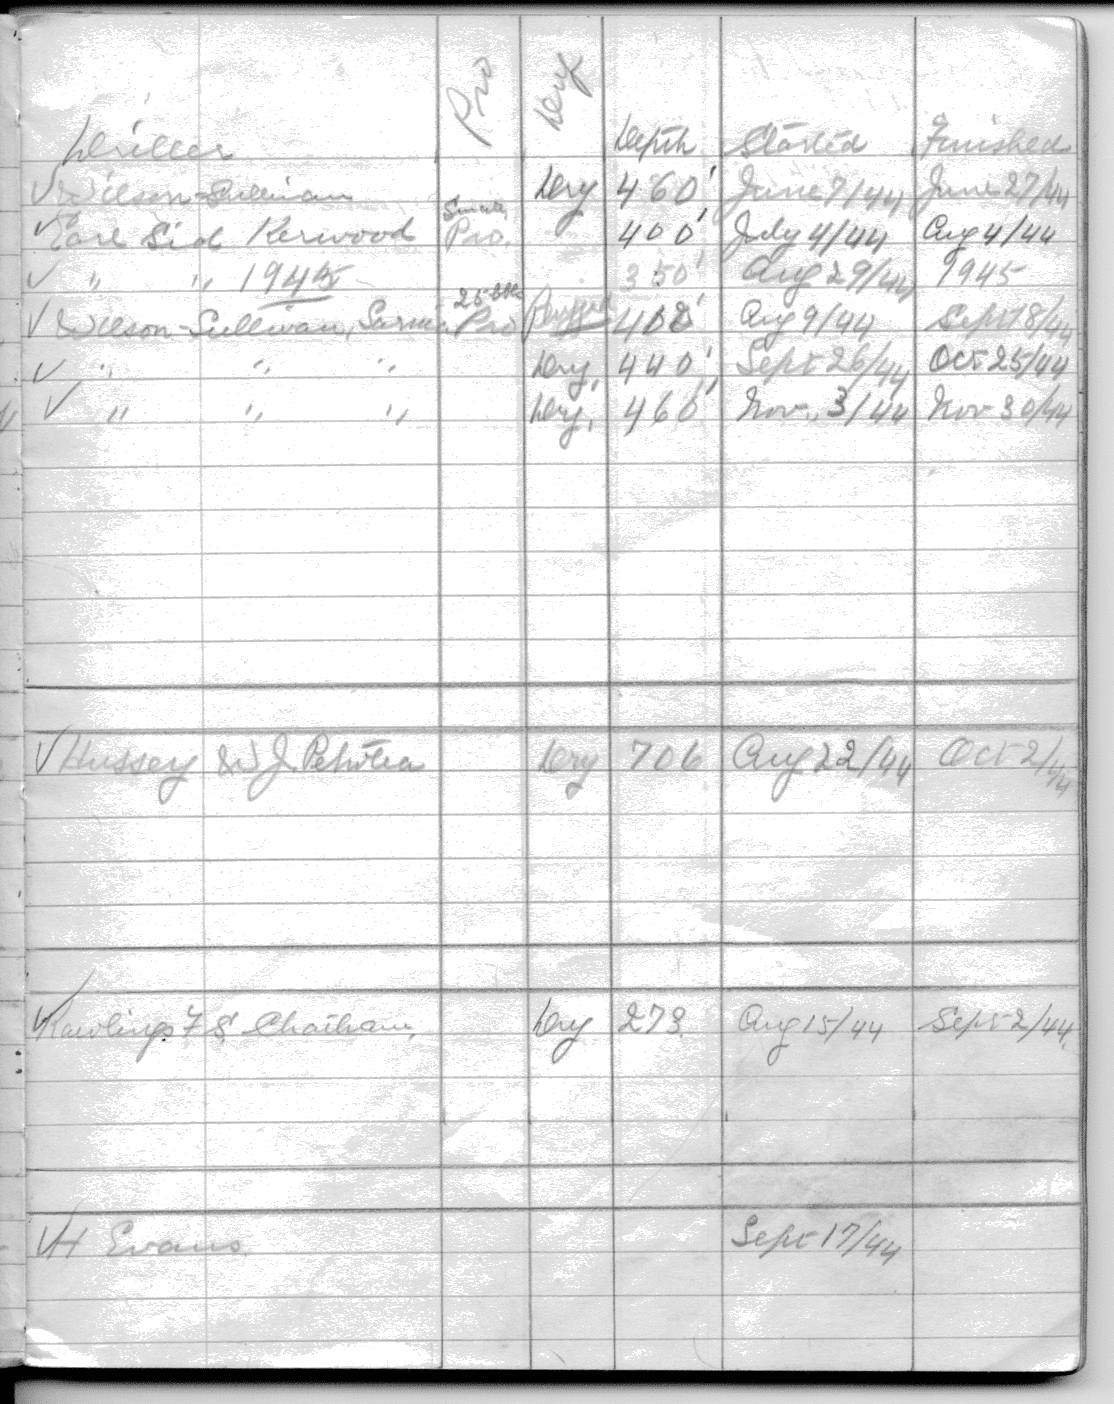 Driller Pro Dry Depth Started Finished
✓ Wilson-Sullivan Dry 460' June 7/44 June 27/44
✓ Earl Sid Kerwood Small Pro. 400' July 4/44 Aug 4/44
✓ " " 1945 350' Aug 29/44 1945
✓ Wilson-Sullivan, Sarnia 25 bbls Pro 408' Aug 9/44 Sept 18/44
✓ " " " Dry, 440' Sept 26/44 Oct 25/44
✓ " " " Dry, 460' Nov. 3/44 Nov 30/44
✓ Hussey & J. Petrolia Dry 706 Aug 22/44 Oct 2/44
✓ Rawlings F S Chatham. Dry 273. Aug 15/44 Sept 2/44.
✓ H Evans. Sept 17/44